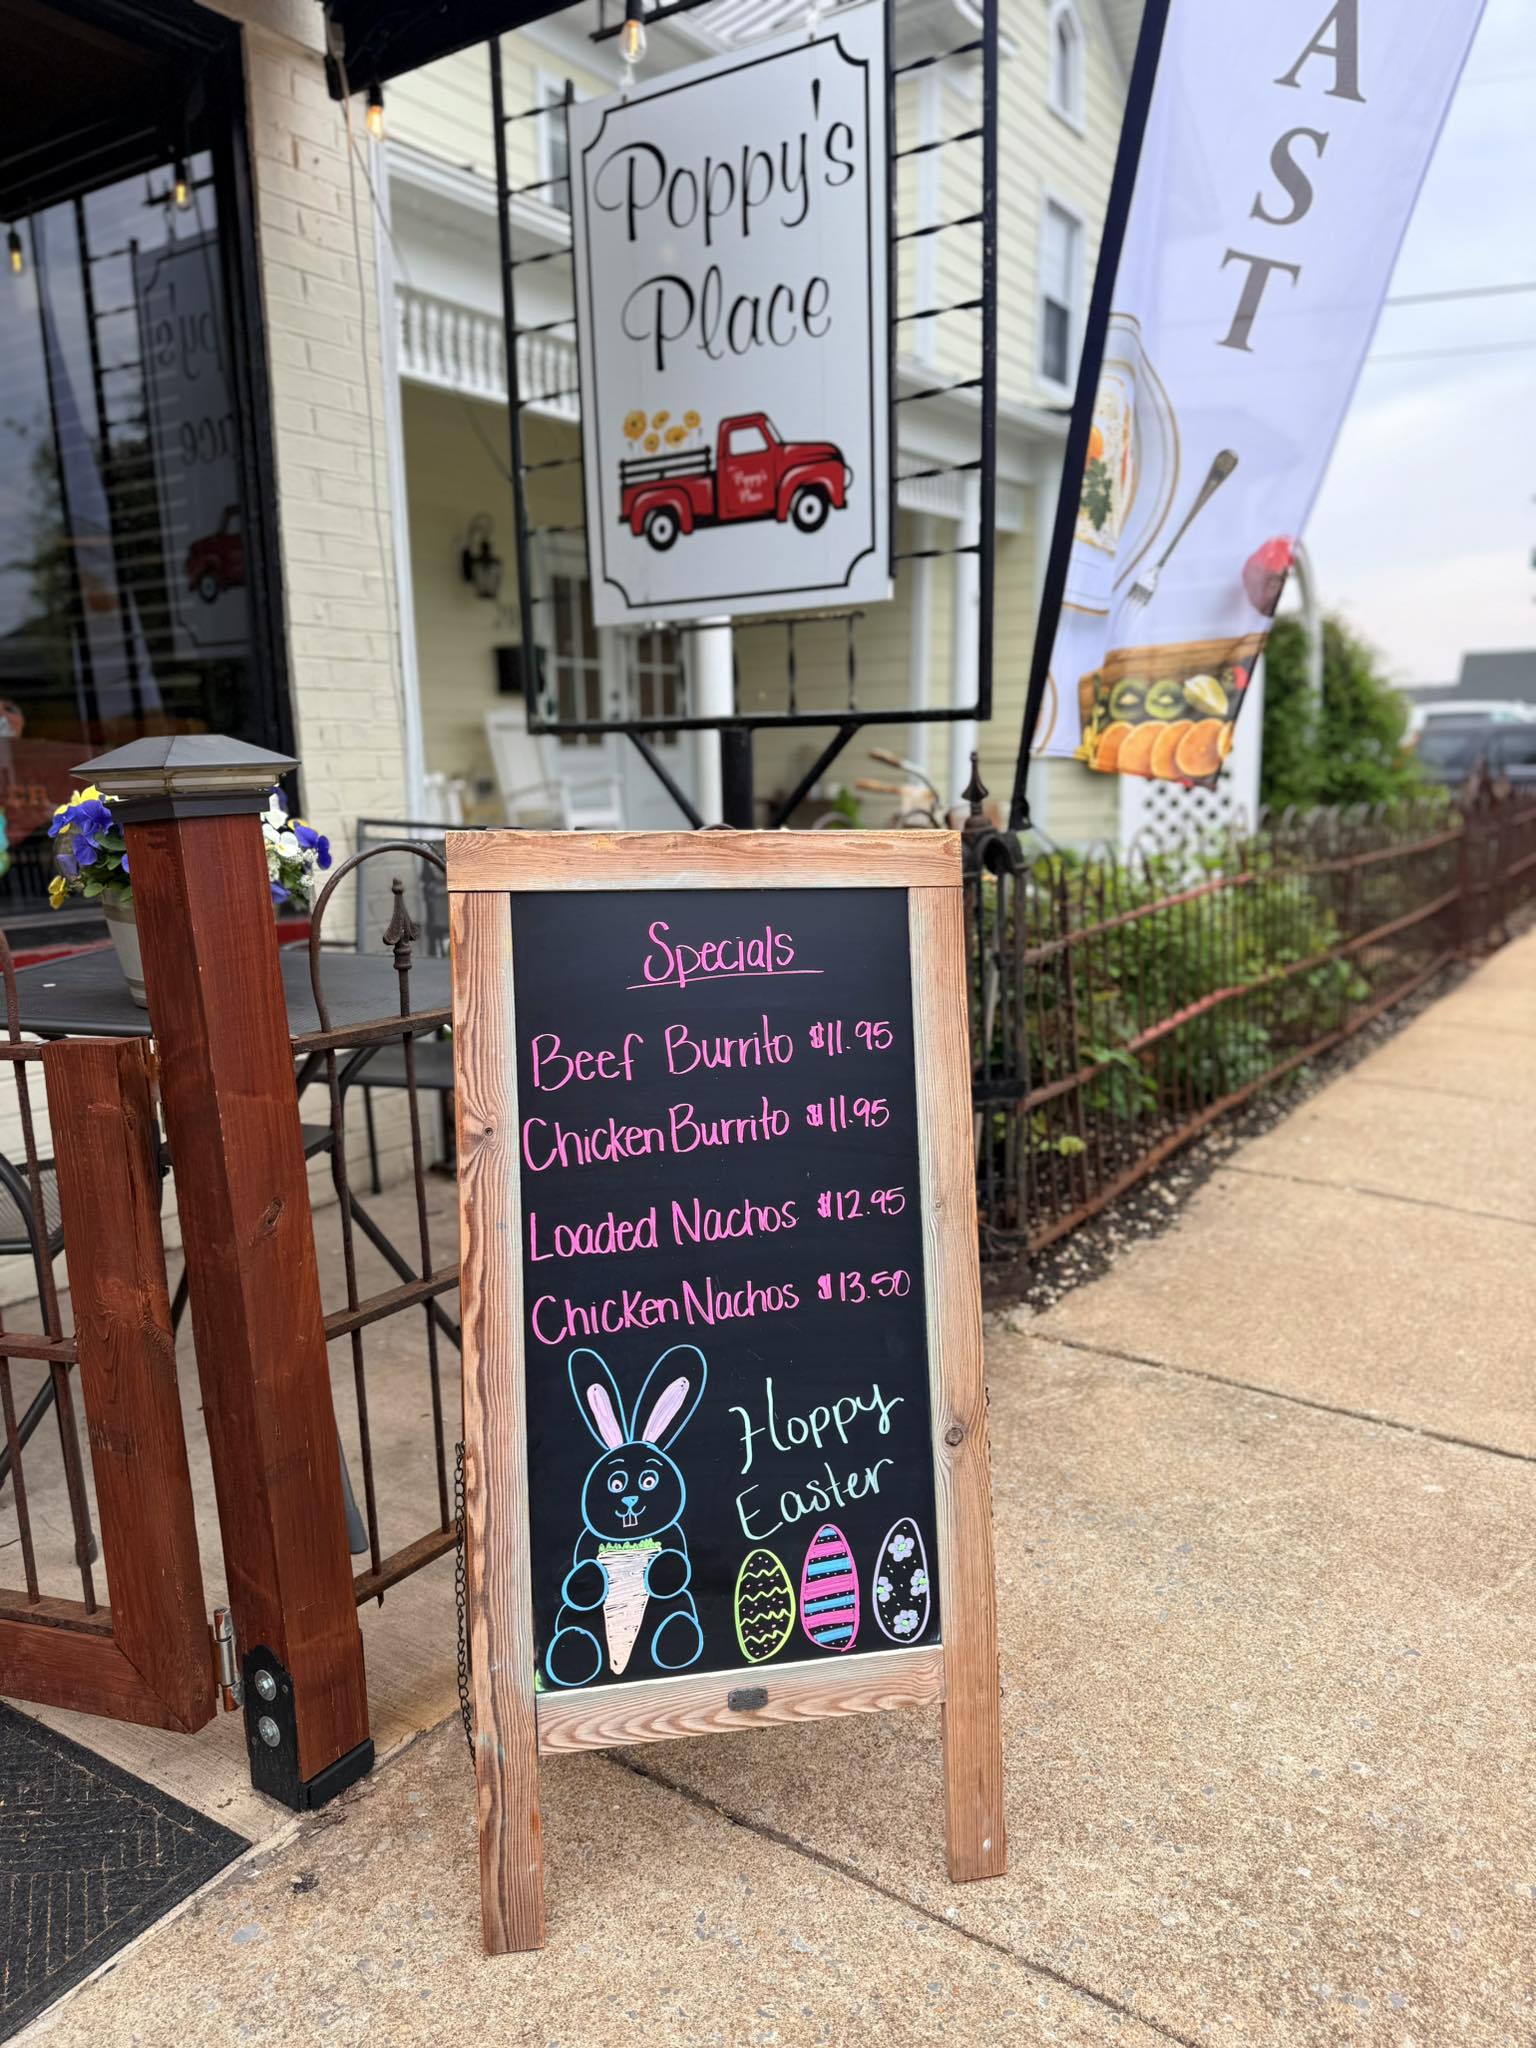 Poppy's
Place
Poppy's
Place
AST
Specials
Beef Burrito $11.95
Chicken Burrito $11.95
Loaded Nachos $12.95
Chicken Nachos $13.50
Hoppy
Easter